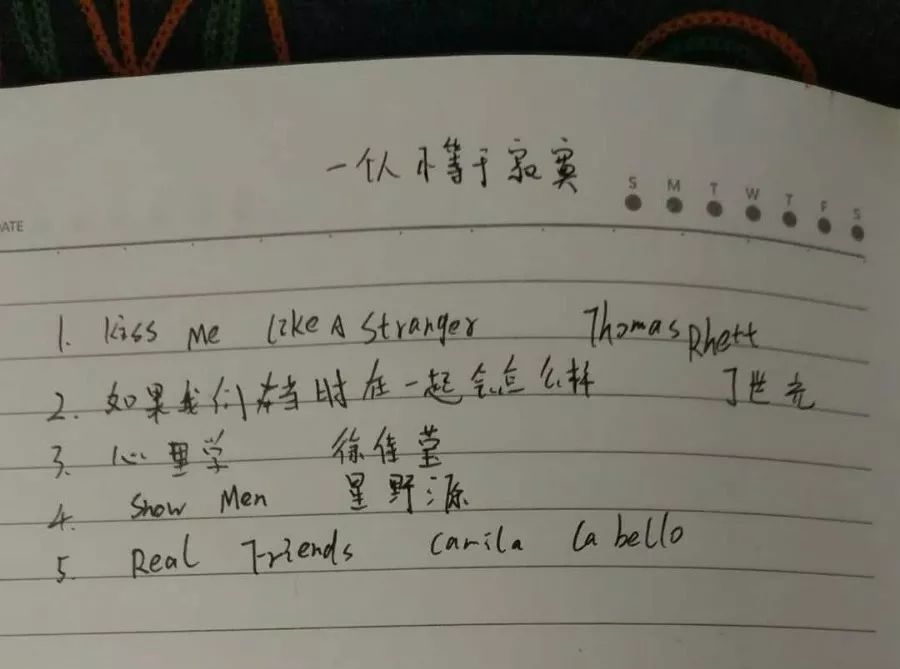 一个人不等于寂寞
S M T W T F S
ATE
1. Kiss Me Like A Stranger Thomas Rhett
2. 如果我们当时在一起会怎么样 丁世光
3. 心理学 徐佳莹
4. Show Men 星野源
5. Real Friends Camila Cabello